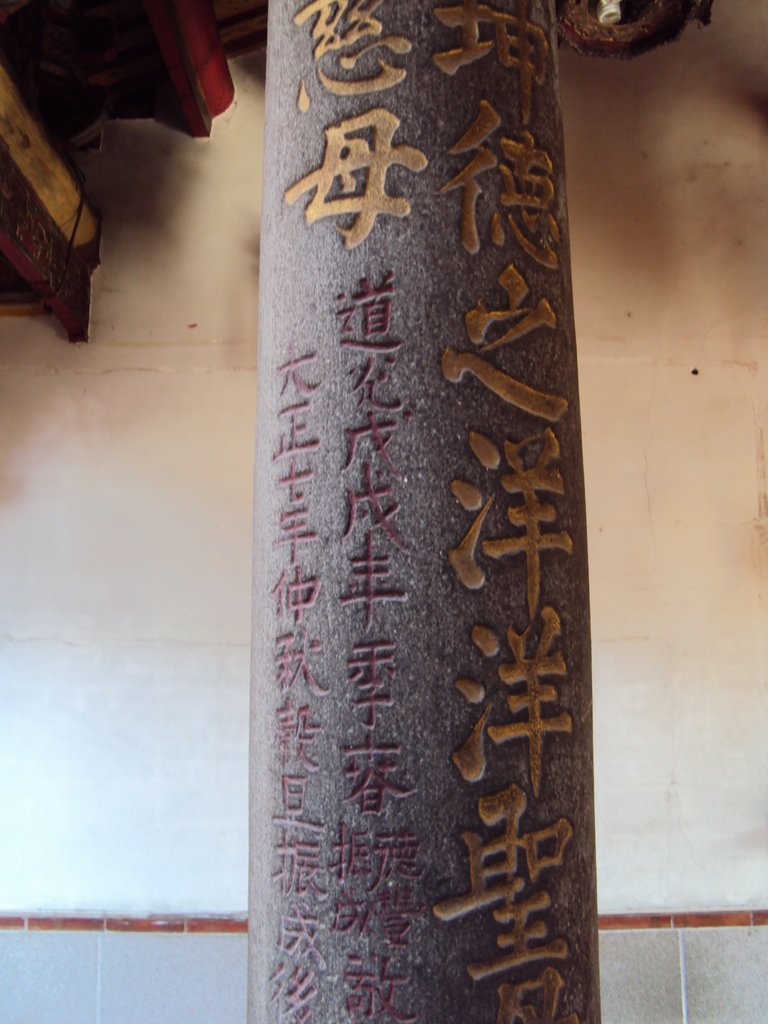 坤德之洋洋聖
慈母
道光戊戌年季春德豐振成敬
大正七年仲秋穀旦振成後